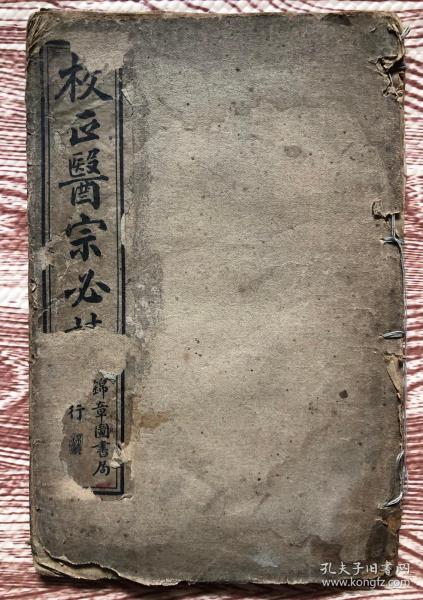 校正醫宗必
錦章圖書局
行
孔夫子旧书网
www.kongfz.com